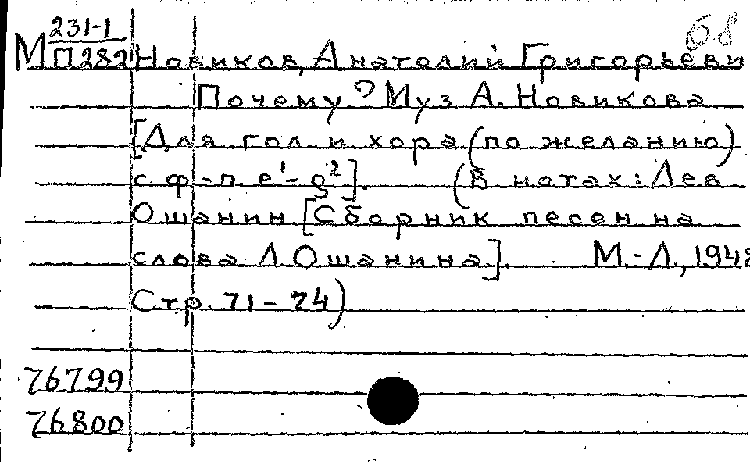 231-1
68
М П282 Новиков, Анатолий Григорьеви
Почему? Муз А. Новикова
[Для гол и хора (по желанию)
с ф-п. e¹-g²]. (В нотах: Лев
Ошанин [Сборник песен на
слова Л Ошанина]. М.-Л., 1948
Стр. 71-74)
76799
76800